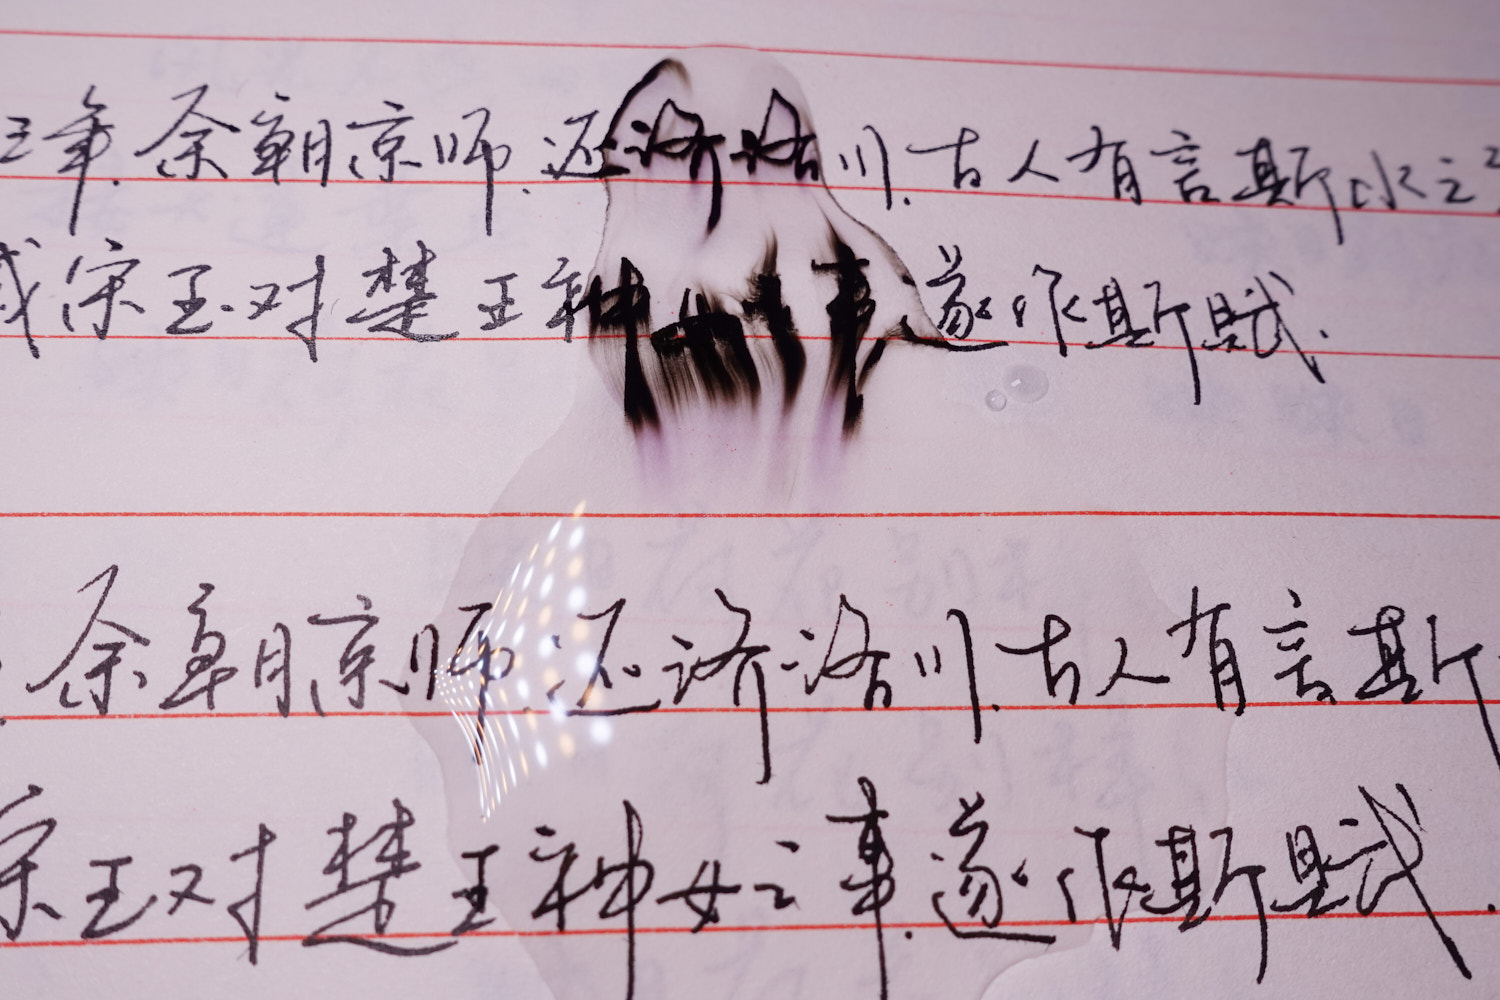 三年.余朝京师.还济洛川.古人有言斯水之
宋玉对楚王神事遂作斯赋.
余朝京师.还济洛川.古人有言斯
宋玉对楚王神女之事.遂作斯赋.